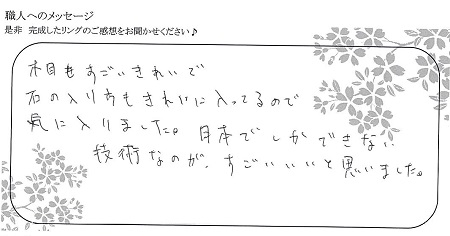 職人へのメッセージ
是非 完成したリングのご感想をお聞かせください♪
木目もすごいきれいで
石の入り方もきれいに入ってるので
気に入りました。日本でしかできない
技術なのが、すごいいいと思いました。